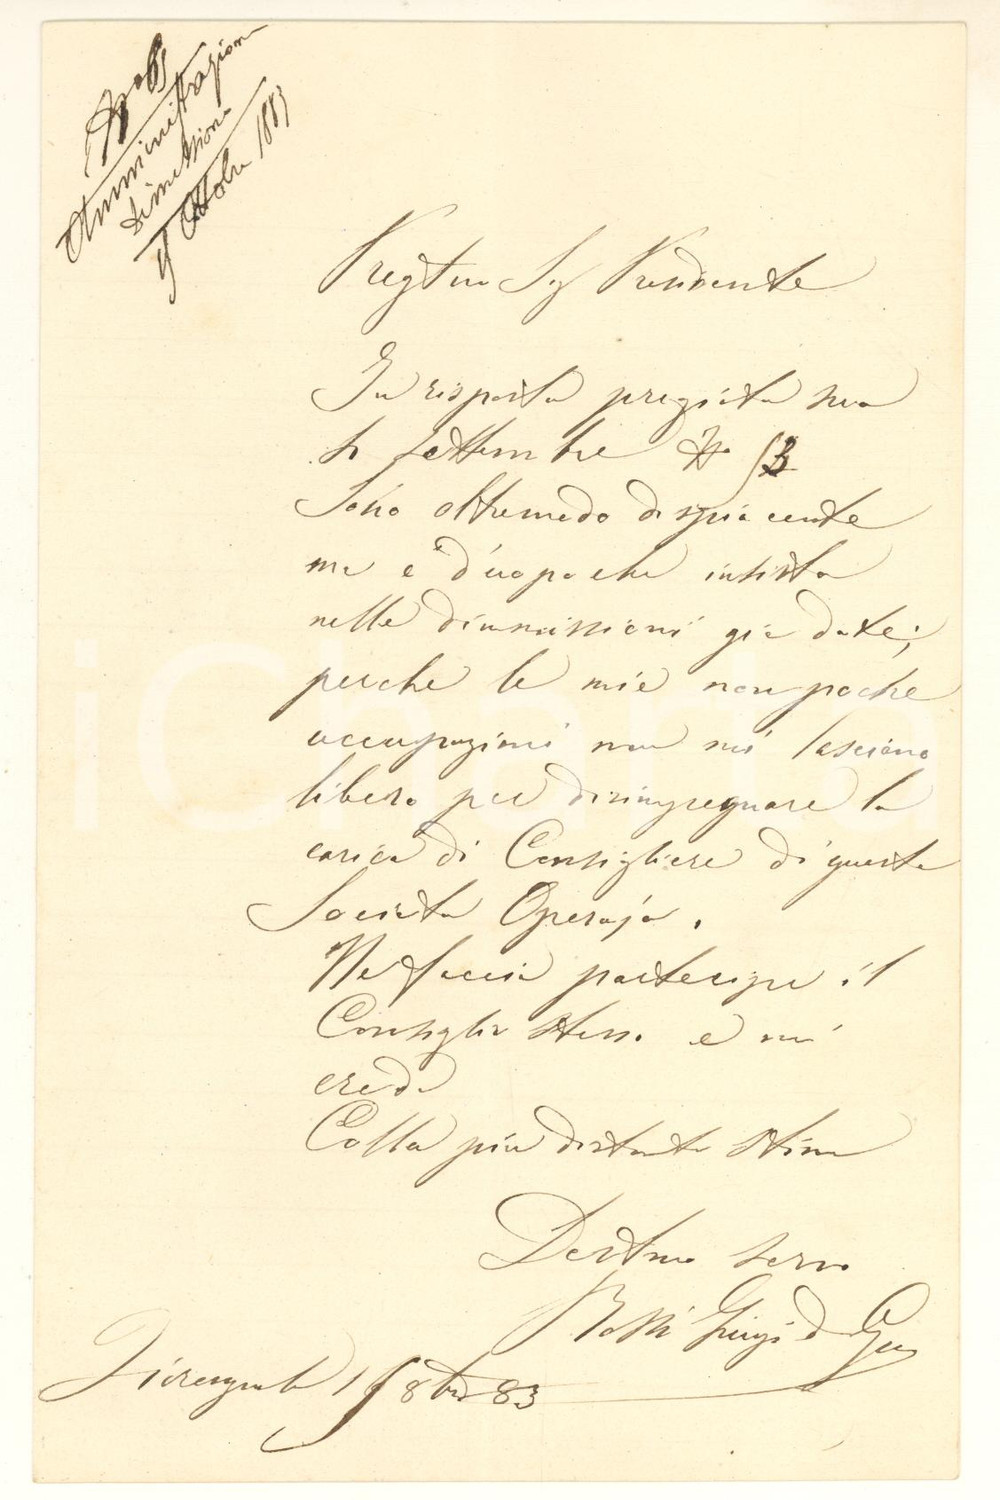 Amministrazione
Dimissione
Ottobre 1883
Pregtmo Sig Presidente
In risposta pregiata sua
Settembre N° 53
Sono oltremodo dispiacente
ma è d'uopo che insista
nelle dimissioni già date;
perche le mie non poche
occupazioni non mi lasciano
libero per disimpegnare la
carica di Consigliere di questa
Società Operaja.
Ne faccia partecipe il
Consiglio stesso e mi
creda
Colla più distinta stima
Devtmo servo
Luigi
Fiorenzuola 8bre 83
iCharta